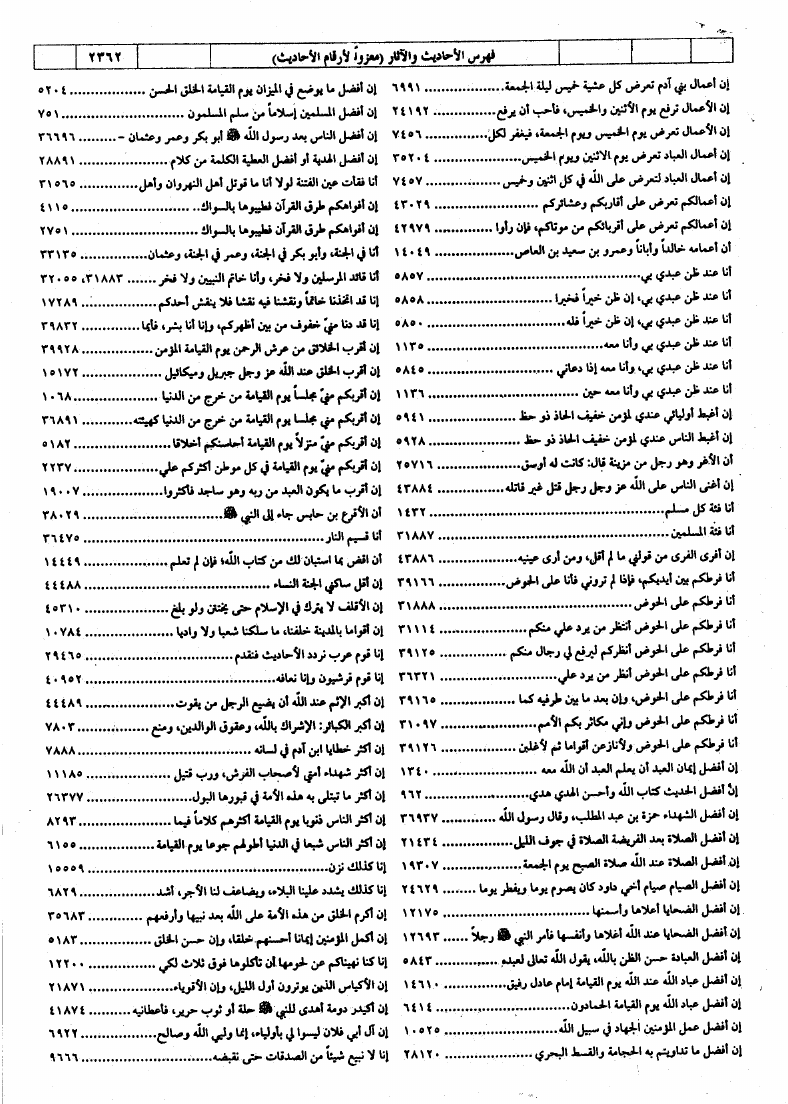 فهرس الأحاديث والآثار (معزواً لأرقام الأحاديث) ٢٣٦٢
إن أعمال بني آدم تعرض كل عشية خميس ليلة الجمعة ٦٩٩١
إن الأعمال ترفع يوم الأثنين والخميس، فأحب أن يرفع ٢٤١٩٢
إن الأعمال تعرض يوم الخميس ويوم الجمعة، فيغفر لكل ٧٤٥٦
إن أعمال العباد تعرض يوم الاثنين ويوم الخميس ٣٥٢٠٤
إن أعمال العباد لتعرض على الله في كل اثنين وخميس ٧٤٥٧
إن أعمالكم تعرض على أقاربكم وعشائركم ٤٣٠٢٩
إن أعمالكم تعرض على أقربائكم من موتاكم، فإن رأوا ٤٢٩٧٩
أن أعمامه خالداً وأباناً وعمرو بن سعيد بن العاص ١٤٠٤٩
أنا عند ظن عبدي بي ٥٨٥٧
أنا عند ظن عبدي بي، إن ظن خيراً فخيرا ٥٨٥٨
أنا عند ظن عبدي بي، إن ظن خيراً فله ٥٨٥٠
أنا عند ظن عبدي بي وأنا معه ١١٣٥
أنا عند ظن عبدي بي، وأنا معه إذا دعاني ٥٨٤٥
أنا عند ظن عبدي بي وأنا معه حين ١١٣٦
إن أغبط أوليائي عندي لمؤمن خفيف الحاذ ذو حظ ٥٩٤١
إن أغبط الناس عندي لمؤمن خفيف الحاذ ذو حظ ٥٩٢٨
أن الأغر وهو رجل من مزينة قال: كانت له أوسق ٢٥٧١٦
إن أغنى الناس على الله عز وجل رجل قتل غير قاتله ٤٣٨٨٤
أنا فئة كل مسلم ١٤٣٢
أنا فئة المسلمين ٣١٨٨٧
إن أفرى الفرى من قولني ما لم أقل، ومن أرى عينيه ٤٣٨٨٦
أنا فرطكم بين أيديكم، فإذا لم تروني فأنا على الحوض ٣٩١٦٦
أنا فرطكم على الحوض ٣١٨٨٨
أنا فرطكم على الحوض أنتظر من يرد علي منكم ٣١١١٤
أنا فرطكم على الحوض أنظركم ليرفع لي رجال منكم ٣٩١٢٥
أنا فرطكم على الحوض أنظر من يرد علي ٣٦٣٢١
أنا فرطكم على الحوض، وإن بعد ما بين طرفيه كما ٣٩١٦٥
أنا فرطكم على الحوض وإني مكاثر بكم الأمم ٣١٠٩٧
أنا فرطكم على الحوض ولأنازعن أقواما ثم لأغلبن ٣٩١٢٦
إن أفضل إيمان العبد أن يعلم العبد أن الله معه ١٣٤٠
إنَّ أفضل الحديث كتاب الله وأحسن الهدي هدي ٩٦٢
إن أفضل الشهداء حمزة بن عبد المطلب، وقال رسول الله ٣٦٩٣٧
إن أفضل الصلاة بعد الفريضة الصلاة في جوف الليل ٢١٤٣٤
إن أفضل الصلاة عند الله صلاة الصبح يوم الجمعة ١٩٣٠٧
إن أفضل الصيام صيام أخي داود كان يصوم يوما ويفطر يوما ٢٤٦٢٩
إن أفضل الضحايا أعلاها وأسمنها ١٢١٧٥
إن أفضل الضحايا عند الله أغلاها وأنفسها فأمر النبي ﷺ رجلاً ١٢٦٩٣
إن أفضل العبادة حسن الظن بالله، يقول الله تعالى لعبده ٥٨٤٣
إن أفضل عباد الله عند الله يوم القيامة إمام عادل رفيق ١٤٦١٠
إن أفضل عباد الله يوم القيامة الحمادون ٦٤١٤
إن أفضل عمل المؤمنين الجهاد في سبيل الله ١٠٥٢٥
إن أفضل ما تداويتم به الحجامة والقسط البحري ٢٨١٢٠
إن أفضل ما يوضع في الميزان يوم القيامة الخلق الحسن ٥٢٠٤
إن أفضل المسلمين إسلاماً من سلم المسلمون ٧٥١
إن أفضل الناس بعد رسول الله ﷺ أبو بكر وعمر وعثمان - ٣٦٦٩٦
إن أفضل الهدية أو أفضل العطية الكلمة من كلام ٢٨٨٩١
أنا فقأت عين الفتنة لولا أنا ما قوتل أهل النهروان وأهل ٣١٥٦٥
إن أفواهكم طرق القرآن فطيبوها بالسواك ٤١١٥
إن أفواهكم طرق القرآن فطيبوها بالسواك ٢٧٥١
أنا في الجنة، وأبو بكر في الجنة، وعمر في الجنة، وعثمان ٣٣١٣٥
أنا قائد المرسلين ولا فخر، وأنا خاتم النبيين ولا فخر ٣١٨٨٣، ٣٢٠٥٥
إنا قد اتخذنا خاتماً ونقشنا فيه نقشا فلا ينقش أحدكم ١٧٢٨٩
إنا قد دنا منيّ خفوف من بين أظهركم، وإنا أنا بشر، فأيما ٣٩٨٣٢
إن أقرب الخلائق من عرش الرحمن يوم القيامة المؤمن ٣٩٩٢٨
إن أقرب الخلق عند الله عز وجل جبريل وميكائيل ١٥١٧٢
إن أقربكم منيّ مجلساً يوم القيامة من خرج من الدنيا ١٠٦٨
إن أقربكم مني مجلسا يوم القيامة من خرج من الدنيا كهيئته ٣٦٨٩١
إن أقربكم منيّ منزلاً يوم القيامة أحاسنكم أخلاقا ٥١٨٢
إن أقربكم منيّ يوم القيامة في كل موطن أكثركم علي ٢٢٣٧
إن أقرب ما يكون العبد من ربه وهو ساجد فأكثروا ١٩٠٠٧
أن الأقرع بن حابس جاء إلى النبي ﷺ ٣٨٠٢٩
أنا قسيم النار ٣٦٤٧٥
أن اقض بما استبان لك من كتاب الله؛ فإن لم تعلم ١٤٤٤٩
إن أقل ساكني الجنة النساء ٤٤٤٨٨
إن الأقلف لا يترك في الإسلام حتى يختتن ولو بلغ ٤٥٣١٠
إن أقواما بالمدينة خلفنا، ما سلكنا شعبا ولا واديا ١٠٧٨٤
إنا قوم عرب نردد الأحاديث فنقدم ٢٩٤٦٥
إنا قوم قرشيون وإنا نعافه ٤٠٩٥٢
إن أكبر الإثم عند الله أن يضيع الرجل من يقوت ٤٤٤٨٩
إن أكبر الكبائر: الإشراك بالله، وعقوق الوالدين، ومنع ٧٨٠٣
إن أكثر خطايا ابن آدم في لسانه ٧٨٨٨
إن أكثر شهداء أمتي لأصحاب الفرش، ورب قتيل ١١١٨٥
إن أكثر ما تبتلى به هذه الأمة في قبورها البول ٢٦٣٧٧
إن أكثر الناس ذنوبا يوم القيامة أكثرهم كلاماً فيما ٨٢٩٣
إن أكثر الناس شبعا في الدنيا أطولهم جوعا يوم القيامة ٦١٥٥
إنا كذلك نزن ١٥٥٥٩
إنا كذلك يشدد علينا البلاء، ويضاعف لنا الأجر، أشد ٦٨٢٩
إن أكرم الخلق من هذه الأمة على الله بعد نبيها وأرفعهم ٣٥٦٨٣
إن أكمل المؤمنين إيمانا أحسنهم خلقا، وإن حسن الخلق ٥١٨٣
إنا كنا نهيناكم عن لحومها أن تأكلوها فوق ثلاث لكي ١٢٢٠٠
إن الأكياس الذين يوترون أول الليل، وإن الأقوياء ٢١٨٧١
إن أكيدر دومة أهدى للنبي ﷺ حلة أو ثوب حرير، فأعطانيه ٤١٨٧٤
إن آل أبي فلان ليسوا لي بأولياء، إنما وليي الله وصالح ٦٩٢٢
إنا لا نبيع شيئاً من الصدقات حتى نقبضه ٩٦٦٦